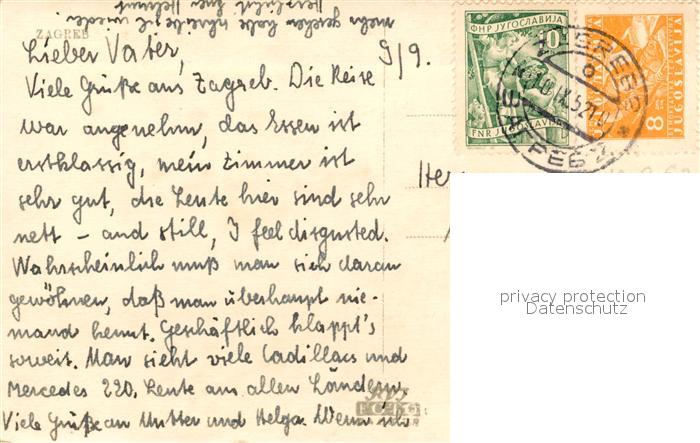 ZAGREB
Lieber Vater, 9/9.
Viele Grüße aus Zagreb. Die Reise
war angenehm, das Essen ist
erstklassig, mein Zimmer ist
sehr gut, die Leute hier sind sehr
nett – and still, I feel disgusted.
Wahrscheinlich muß man sich daran
gewöhnen, daß man überhaupt nie-
mand kennt. Geschäftlich klappt's
soweit. Man sieht viele Cadillacs und
Mercedes 220. Leute aus allen Ländern.
Viele Grüße an Mutter und Helga. Wenn ich
mehr gesehen habe schreibe ich wieder
Herzlichst Euer Helmut
ФНР ЈУГОСЛАВИЈА
10
FNR JUGOSLAVIJA
JUGOSLAVIJA
8
ZAGREB
ЗАГРЕБ 2
10.IX.52
Her
privacy protection
Datenschutz